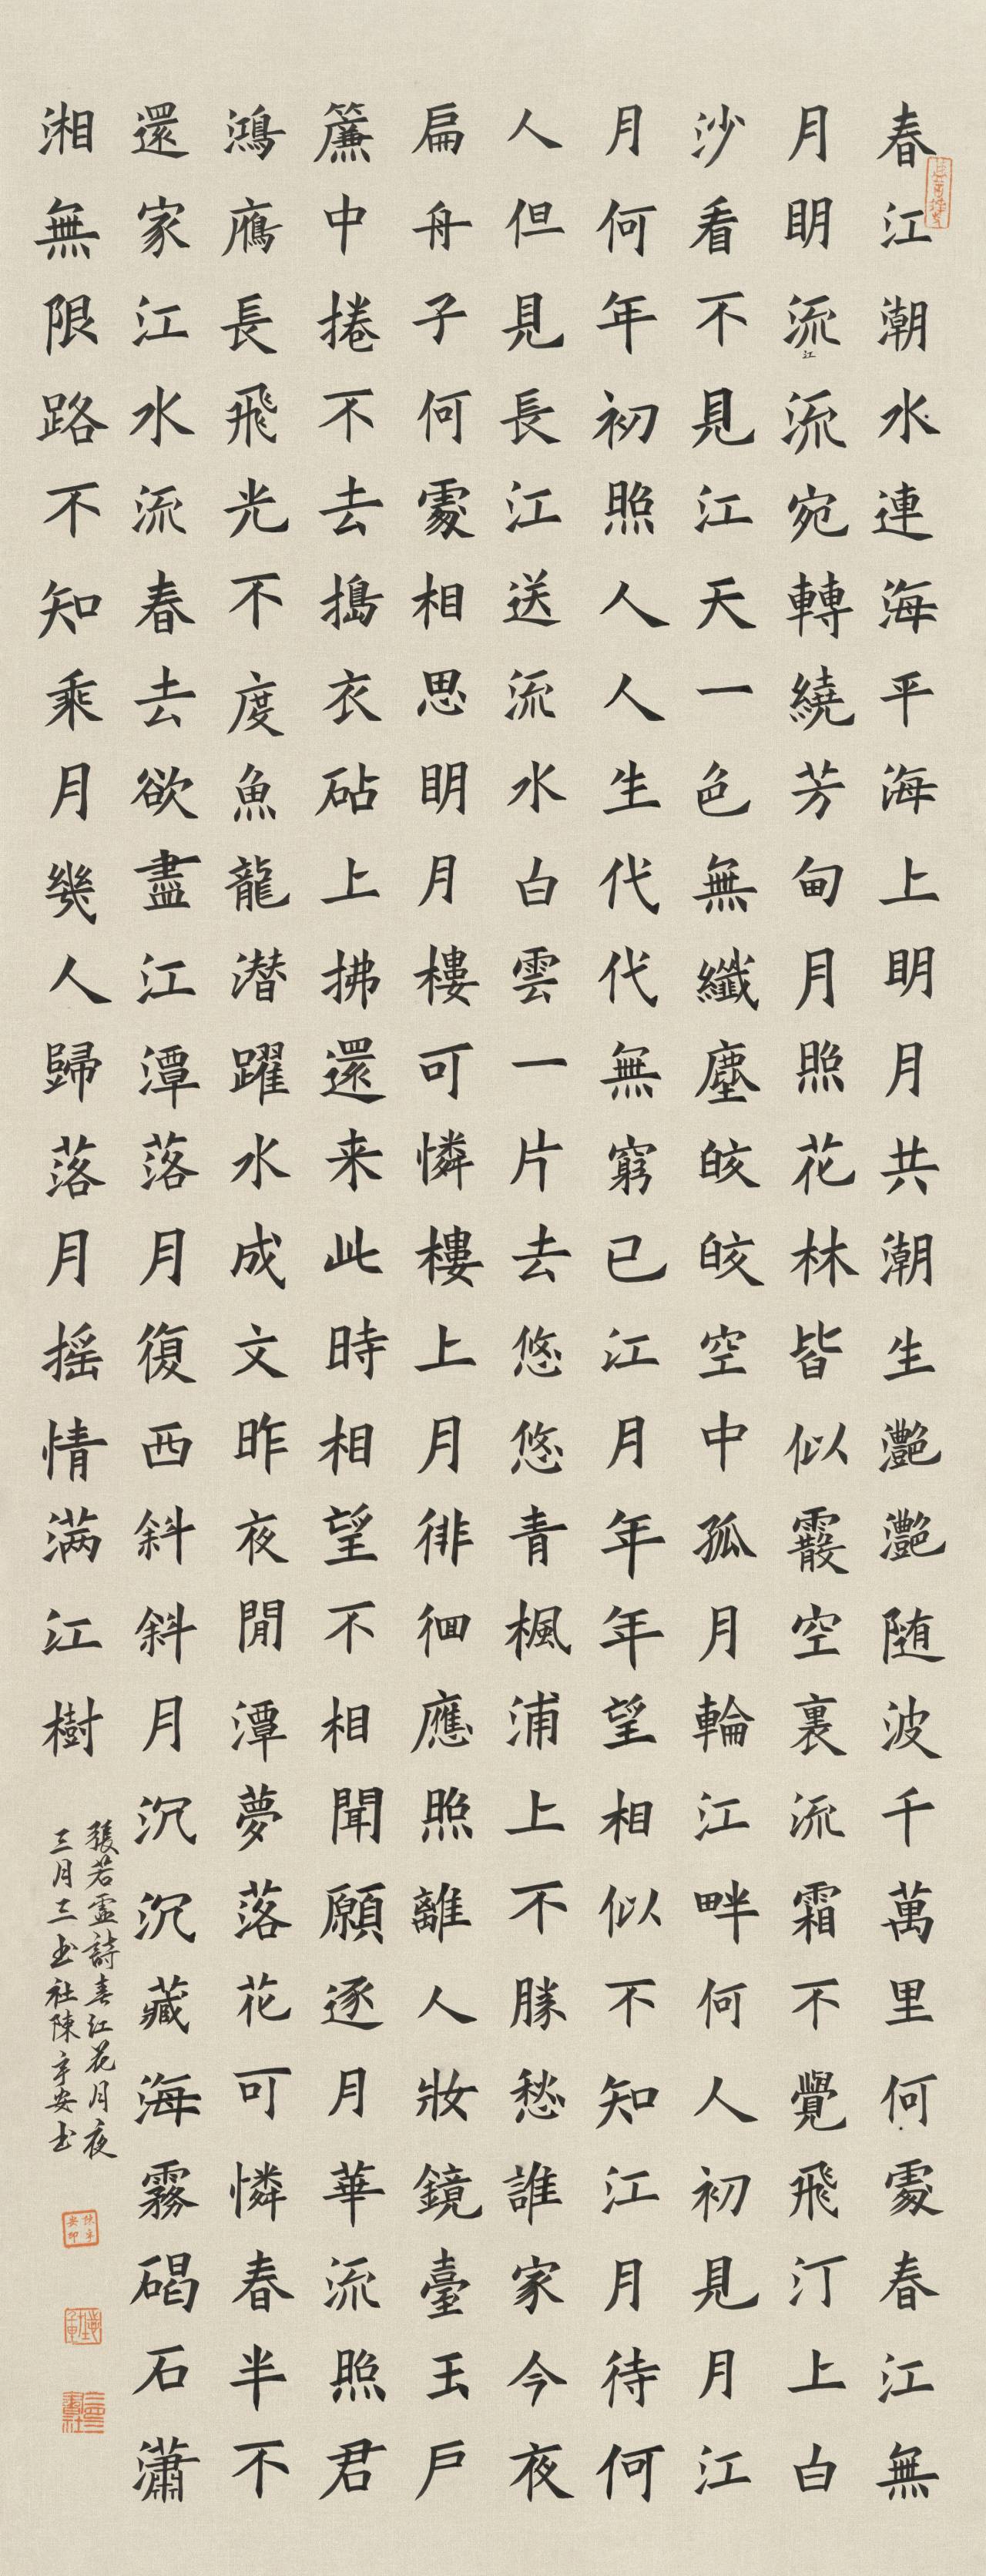 春江潮水連海平海上明月共潮生灧灧随波千萬里何處春江無
月明流江流宛轉繞芳甸月照花林皆似霰空裏流霜不覺飛汀上白
沙看不見江天一色無纖塵皎皎空中孤月輪江畔何人初見月江
月何年初照人人生代代無窮已江月年年望相似不知江月待何
人但見長江送流水白雲一片去悠悠青楓浦上不勝愁誰家今夜
扁舟子何處相思明月樓可憐樓上月徘徊應照離人妝鏡臺玉戶
簾中捲不去搗衣砧上拂還来此時相望不相聞願逐月華流照君
鴻鴈長飛光不度魚龍潜躍水成文昨夜閒潭夢落花可憐春半不
還家江水流春去欲盡江潭落月復西斜斜月沉沉藏海霧碣石瀟
湘無限路不知乘月幾人歸落月摇情满江樹
張若虛詩春江花月夜
三月三书社陳辛安书
陳辛安印